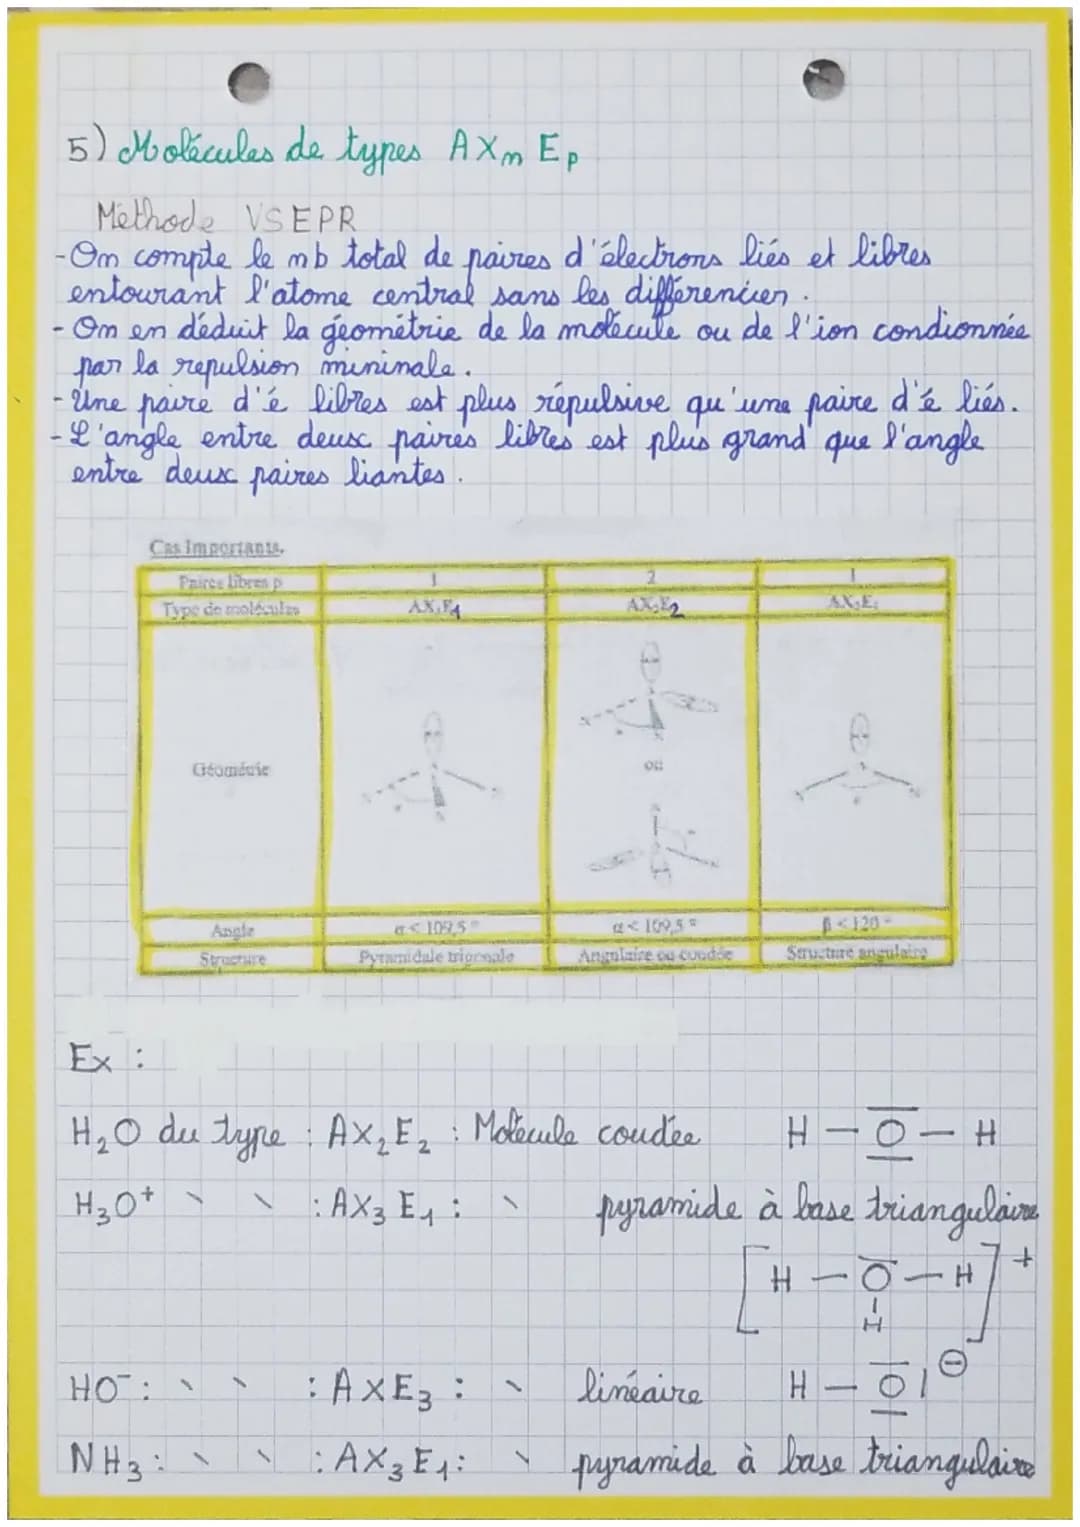 5) Molécules de types AXm Ep
Méthode VSEPR
- On compte le nb total de paires d'électrons liés et libres
entourant l'atome central sans les différencier.
- On en déduit la géométrie de la molécule ou de l'ion condionnée
par la repulsion mininale.
- Une paire d'é libres est plus répulsive qu'une paire d'é liés.
- L'angle entre deux paires libres est plus grand que l'angle
entre deux paires liantes.
Cas Importants.
Paires libres p 1 2 1
Type de molécules AX₃E₁ AX₂E₂ AX₂E₁
Géométrie
ou
Angle α < 109,5° α < 109,5° β < 120°
Structure Pyramidale trigonale Angulaire ou coudée Structure angulaire
Ex :
H₂O du type : AX₂E₂ : Molécule coudée H – O – H
H₃O⁺ \ \ : AX₃E₁ : \ pyramide à base triangulaire
[H – O – H]⁺
H
HO⁻ : \ \ : AXE₃ : \ linéaire H – O| ⊖
NH₃ : \ \ : AX₃E₁ : \ pyramide à base triangulaire